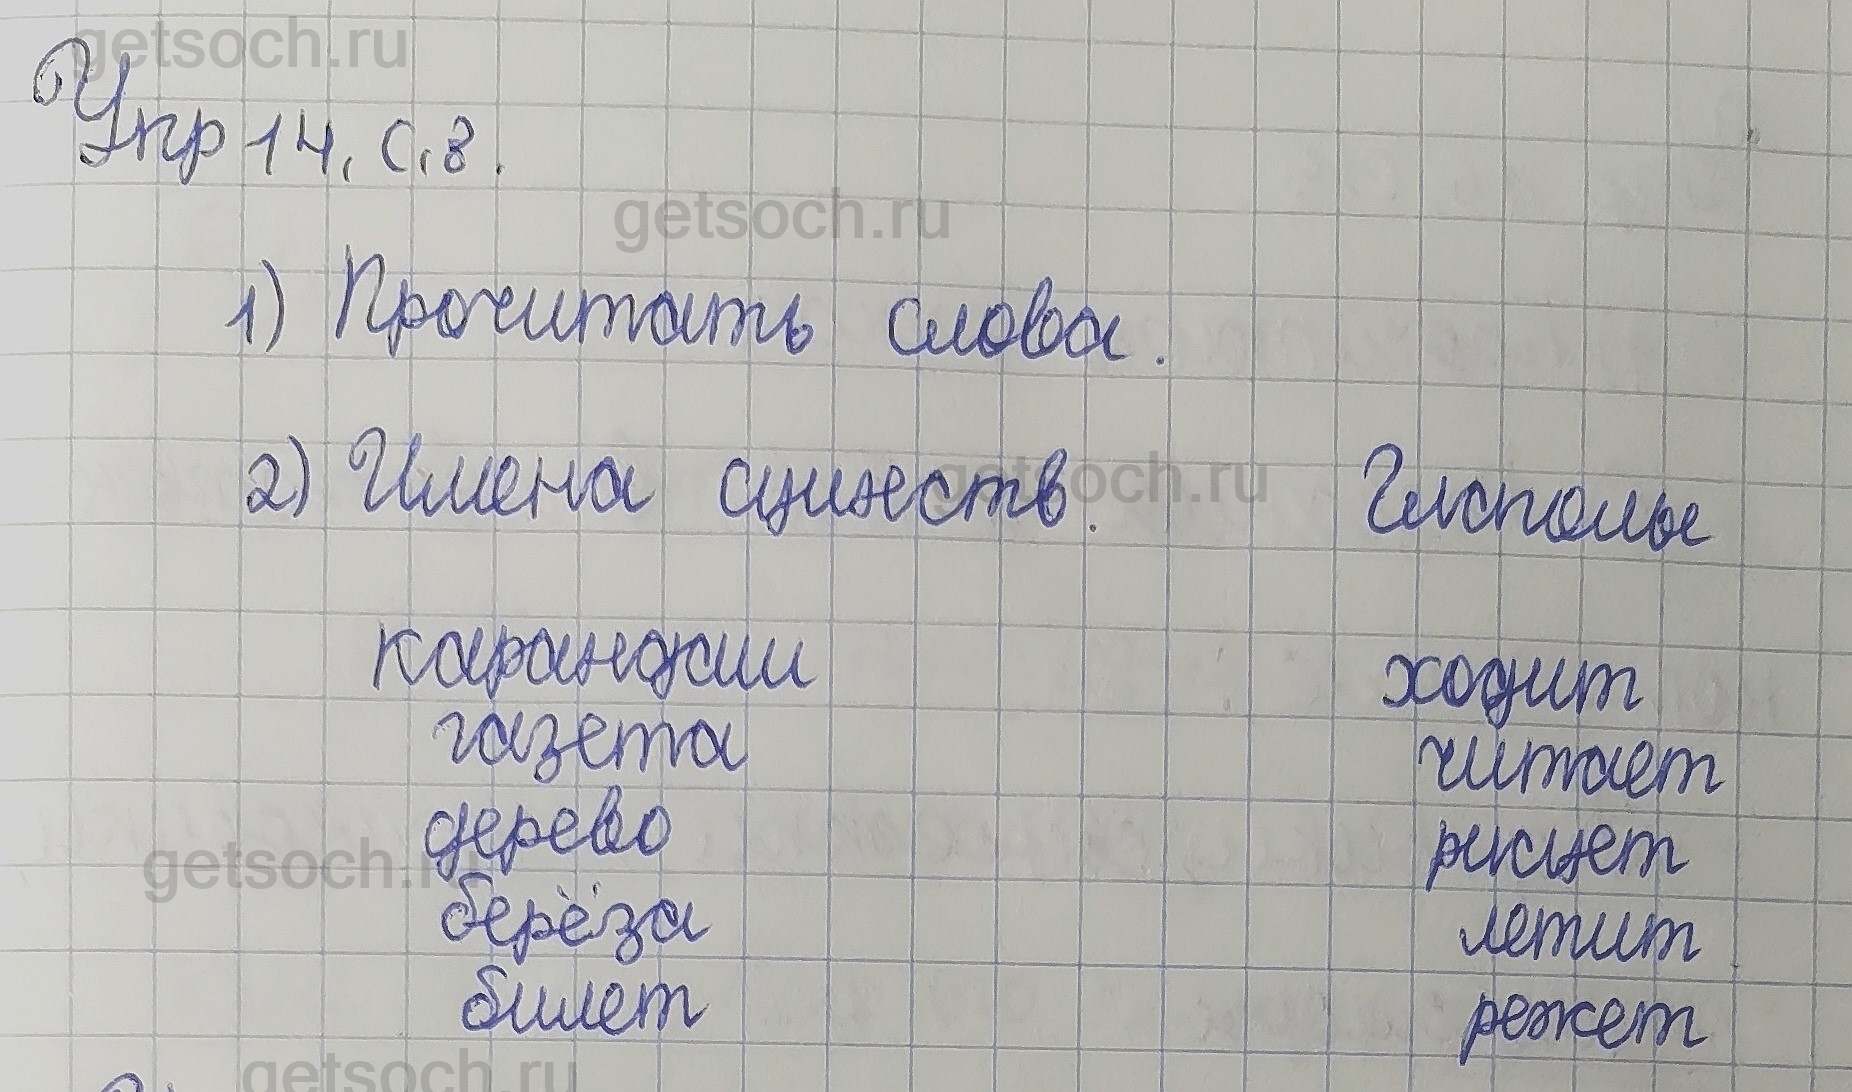 getsoch.ru
Упр 14, с. 8.
getsoch.ru
1) Прочитать слова.
2) Имена существ. Глаголы
getsoch.ru
карандаш ходит
газета читает
дерево рисует
getsoch.ru
берёза летит
билет режет
getsoch.ru